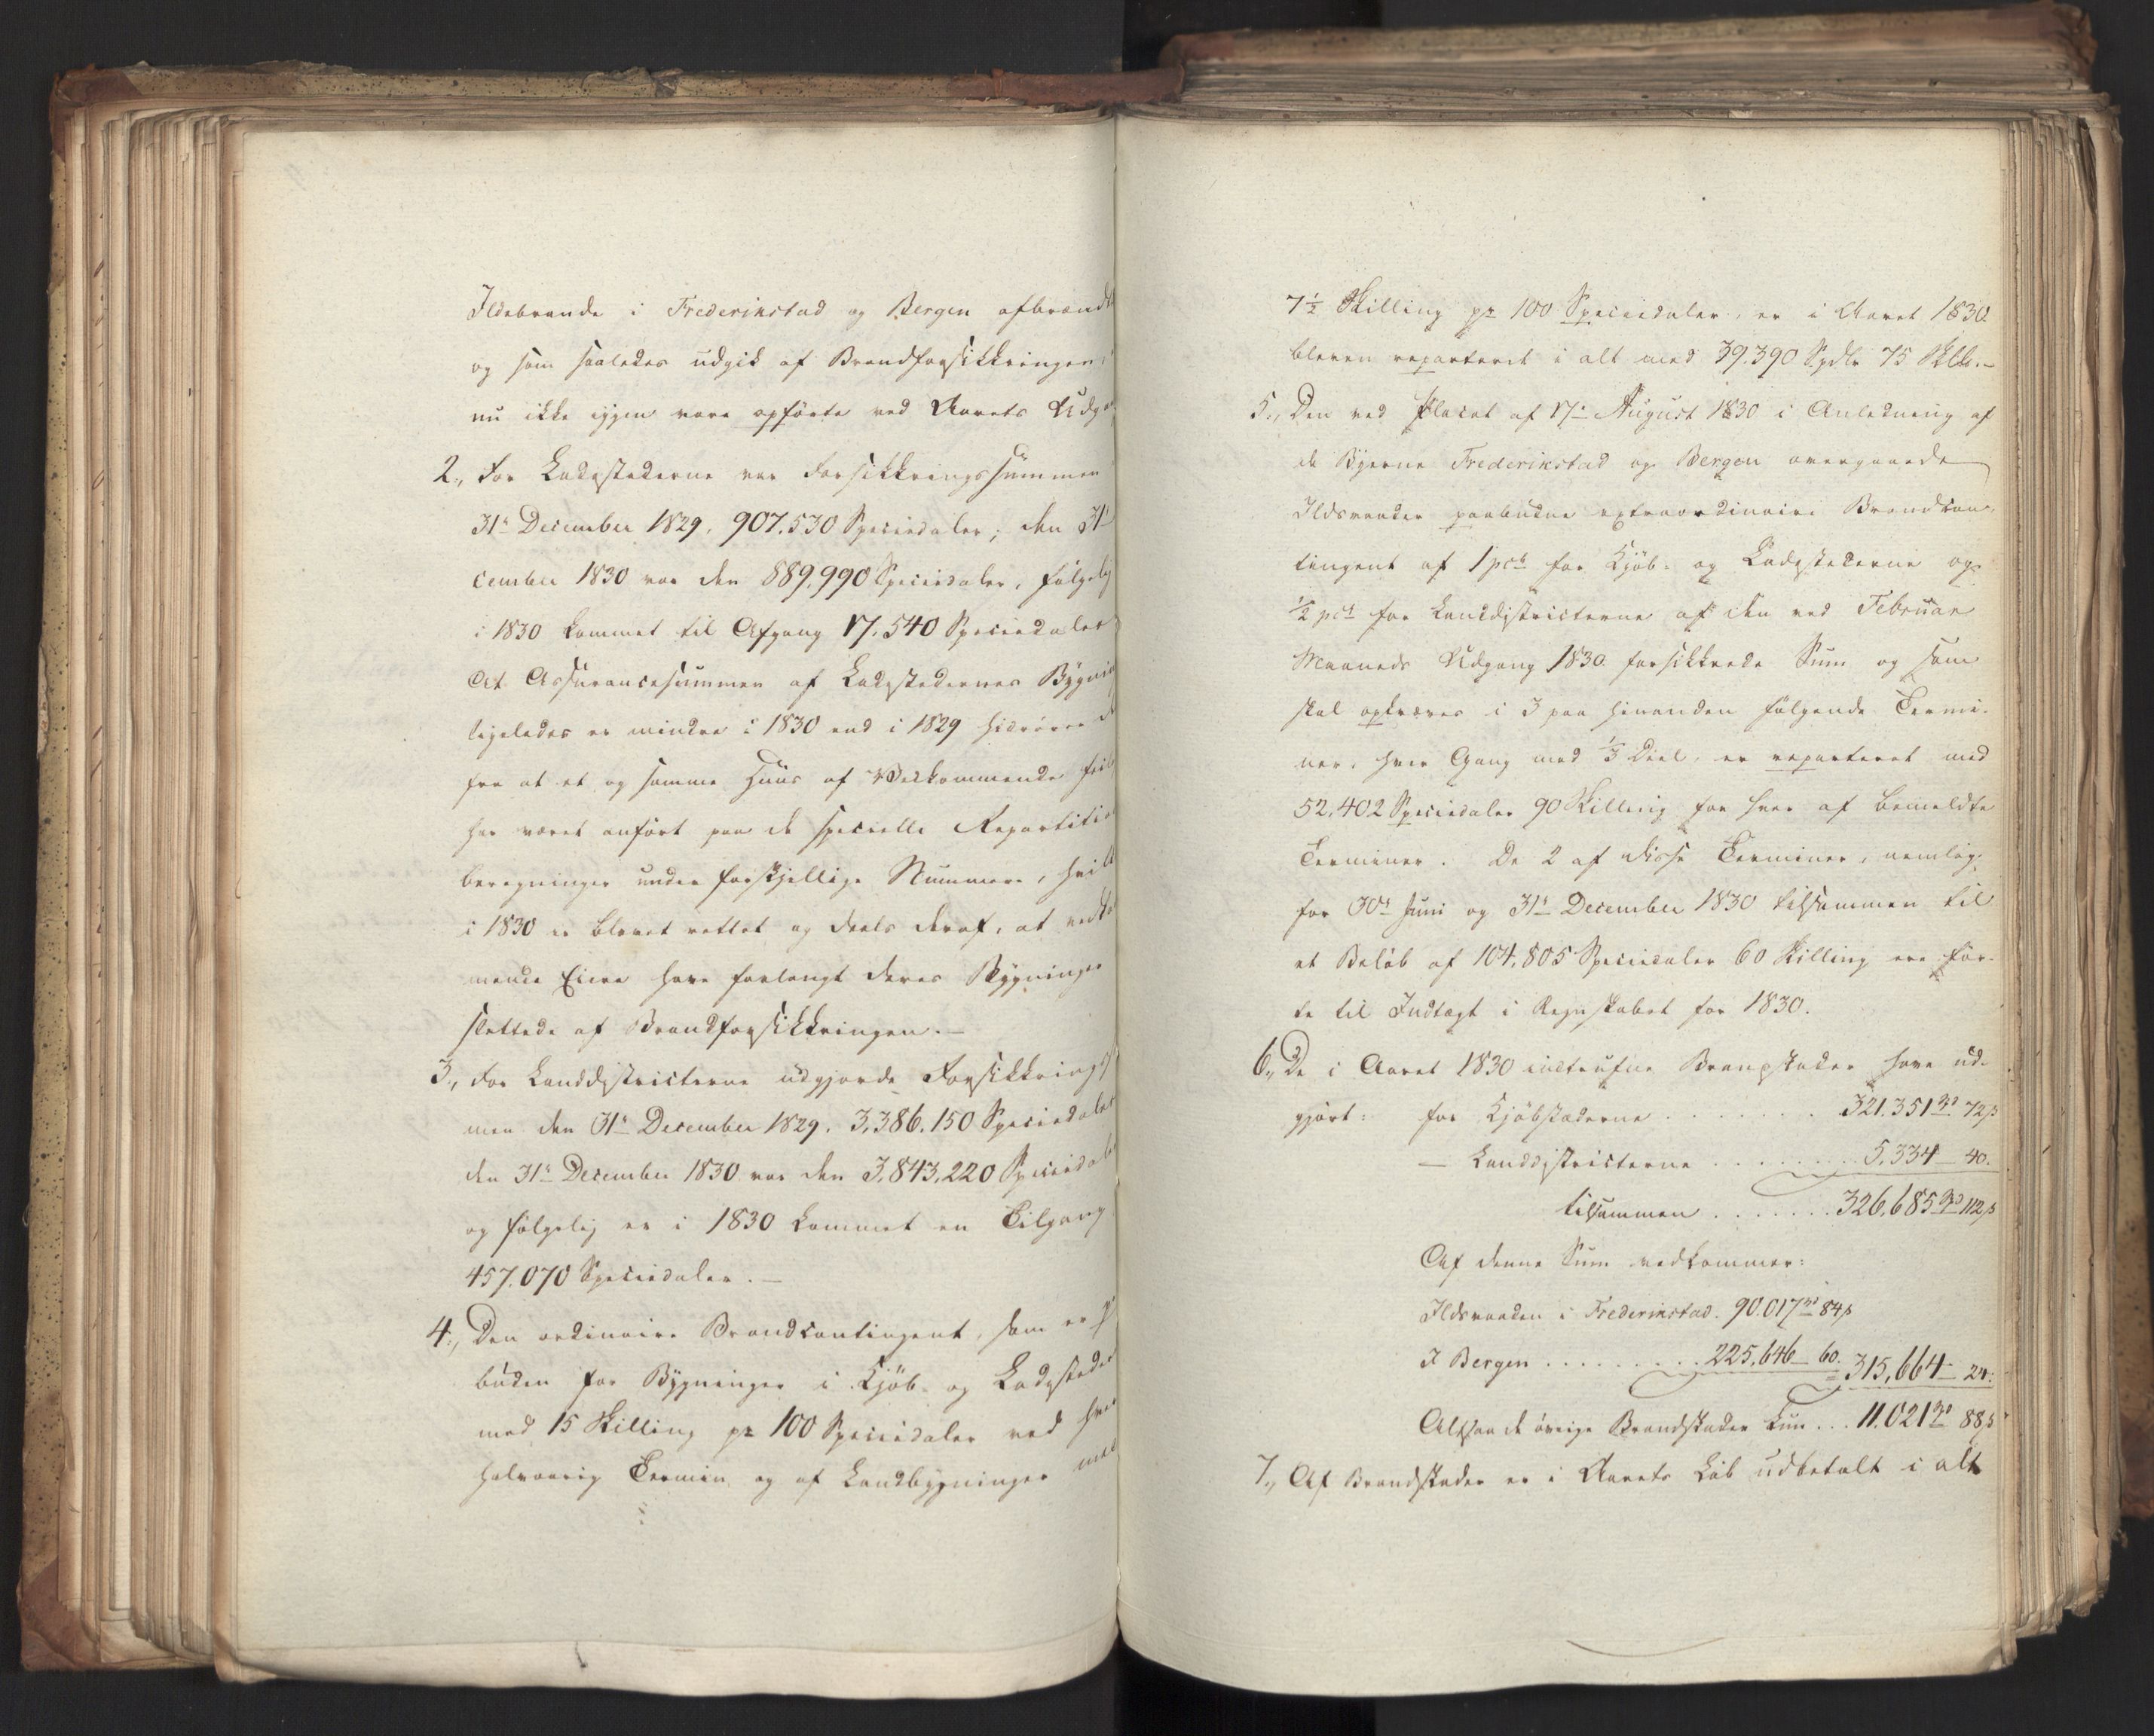 Ildebrande i Frederikstad og Bergen afbrændt
og som saaledes udgik af Brandforsikkringen,
nu ikke igjen vare opförte ved Aarets Udga
2., For Ladestederne var Forsikkringssummen
31te December 1829, 907.530 Speciedaler; den 31te
cember 1830 var den 889,990 Speciedaler, fölgelig
i 1830 kommet til Afgang 17.540 Speciedaler
At Assurancesummen af Ladestedernes Bygni
ligeledes er mindre i 1830 end i 1829 hidrörer
fra at et og samme Huus af Vedkommende
har været anfört paa de specielle Repartitio
beregninger under forskjellige Nummere, hvilk
i 1830 er blevet rettet og deels deraf, at vedko
mende Eiere have forlangt deres Bygninger
slettede af Brandforsikkringen.-
3., For Landdistricterne udgjorde Forsikkrings
men den 31te December 1829, 3,386.150 Speciedaler
den 31te December 1830 var den 3,843,220 Speciedal
og fölgelig er i 1830 kommet en Tilgang
457.070 Speciedaler.-
4., Den ordinaire Brandcontingent, som er p
buden for Bygninger i Kjöb- og Ladesteder
med 15 Skilling pr 100 Speciedaler ved hver
halvaarig Termin og af Landbygninger med
7½ Skilling pr 100 Speciedaler, er i Aaret 1830
bleven reparteret i alt med 39.390 Spdlr 75 Skill.-
5., Den ved Placat af 17de August 1830 i Anledning af
de Byerne Frederikstad og Bergen overgaaede
Ildsvaader paabudne extraordinaire Brandcon-
tingent af 1 pct for Kjöb- og Ladestederne og
½ pct for Landdistricterne af den ved Februar
Maaneds Udgang 1830 forsikkrede Sum og som
skal opkræves i 3 paa hinanden fölgende Termi-
ner, hver Gang med ⅓ Deel, er reparteret med
52,402 Speciedaler 90 Skilling for hver af bemeldte
Terminer. De 2 af disse Terminer, nemlig
for 30te Juni og 31te December 1830 tilsammen til
et Belöb af 104,805 Speciedaler 60 Skilling ere för-
te til Indtægt i Regnskabet for 1830.
6., De i Aaret 1830 indtrufne Brandskader have ud-
gjort: for Kjöbstæderne . . . . . . . 321.351 Spd 72 s
— Landdistricterne . . . . . . . 5,334 — 40.
tilsammen . . . . . . . 326,685 Spd 112 s
Af denne Sum vedkommer:
Ildsvaaden i Frederikstad. 90.017 Spd 84 s
I Bergen . . . . . . . . . 225,646 — 60. = 315,664 — 24.
Altsaa de övrige Brandskader kun . . . 11.021 Spd 88 s
7., Af Brandskader er i Aarets Löb udbetalt i alt